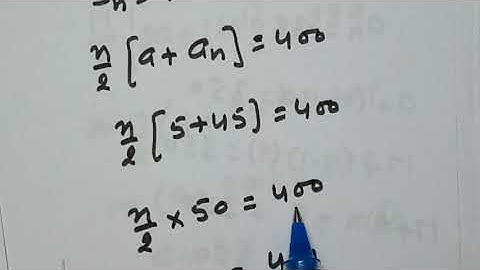 n/2 [a + an] = 400
n/2 [5 + 45] = 400
n/2 × 50 = 400